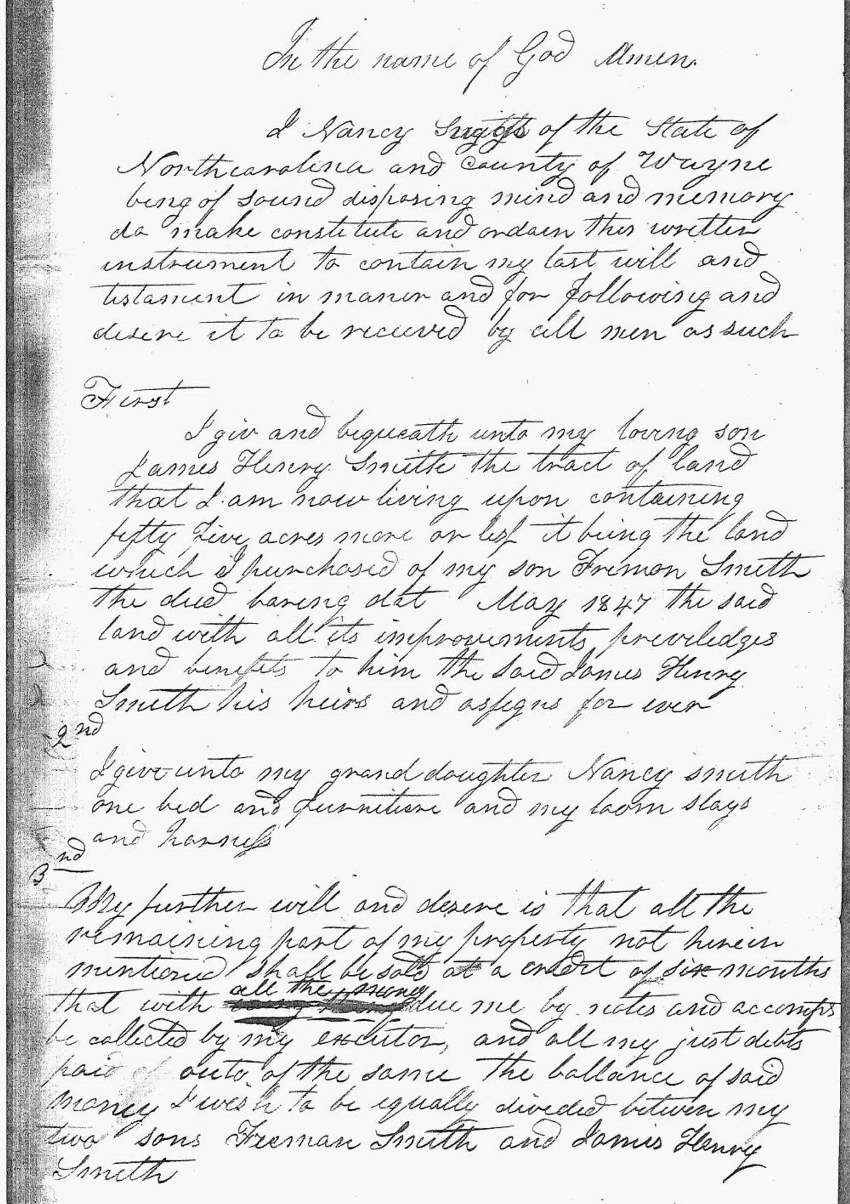 In the name of God Amen.
I Nancy of the State of
Northcarolina and County of Wayne
being of sound disposing mind and memory
do make constitute and ordain this written
instrument to contain my last will and
testament in maner and for following and
desire it to be recieved by all men as such
First
I giv and bequeath unto my loving son
James Henry Smith the tract of land
that I am now living upon containing
fifty five acres more or less it being the land
which I purchased of my son Frimon Smith
the died baring dat May 1847 the said
land with all its improvements previledges
and benefits to him the Said James Henry
Smith his heirs and assigns for ever
2nd
I give unto my grand daughter Nancy smith
one bed and furniture and my loom slays
and harness
3nd
My further will and desire is that all the
remaining part of my property not herein
mentioned shall be sold at a credit of six months
that with all the money due me by notes and accompts
be collected by my excutor, and all my just debts
paid outo of the same the ballance of said
money I wish to be equally divided betwen my
two sons Freeman Smith and James Henry
Smith